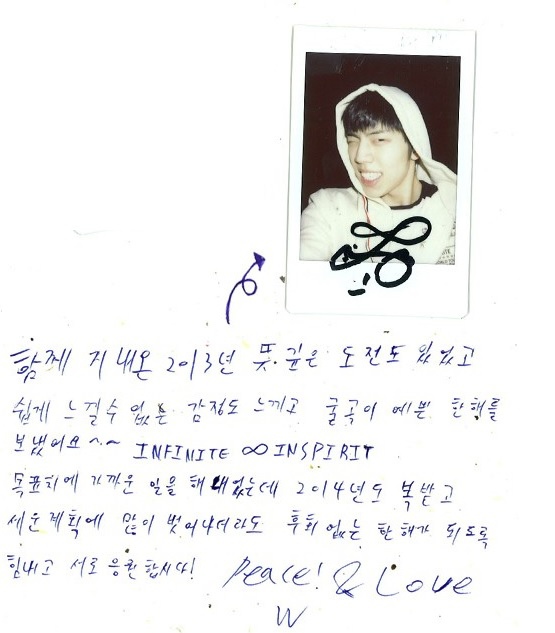 함께 지내온 2013년 뜻.깊은 도전도 있었고
쉽게 느낄수 없는 감정도 느끼고 굴곡이 예쁜 한해를
보냈어요^~ INFINITE ∞ INSPIRIT
목표치에 가까운 일을 해내었는데 2014년도 복받고
세운계획에 많이 벗어나더라도 후회 없는 한해가 되도록
힘내고 서로 응원합시다! Peace! & Love
W